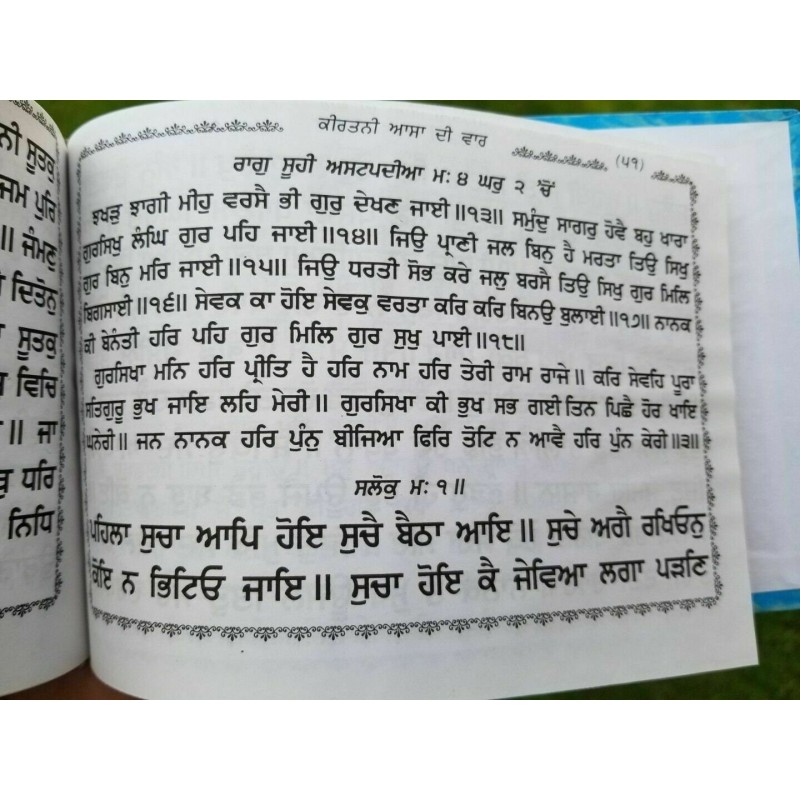 ਨੀ ਸੂਤਕੁ
ਜਮ ਪੁਰਿ
॥ ਜੰਮਣੁ
ਦਿਤੋਨੁ
ਸੂਤਕੁ
ਵਿਚਿ
॥ ਜਾ
ਧਰਿ
ਨਿਧਿ
ਕੀਰਤਨੀ ਆਸਾ ਦੀ ਵਾਰ
(੫੧)
ਰਾਗੁ ਸੂਹੀ ਅਸਟਪਦੀਆ ਮਃ ੪ ਘਰੁ ੨ 'ਚੋਂ
ਝਖੜੁ ਝਾਗੀ ਮੀਹੁ ਵਰਸੈ ਭੀ ਗੁਰੁ ਦੇਖਣ ਜਾਈ॥੧੩॥ ਸਮੁੰਦੁ ਸਾਗਰੁ ਹੋਵੈ ਬਹੁ ਖਾਰਾ
ਗੁਰਸਿਖੁ ਲੰਘਿ ਗੁਰ ਪਹਿ ਜਾਈ॥੧੪॥ ਜਿਉ ਪ੍ਰਾਣੀ ਜਲ ਬਿਨੁ ਹੈ ਮਰਤਾ ਤਿਉ ਸਿਖੁ
ਗੁਰ ਬਿਨੁ ਮਰਿ ਜਾਈ॥੧੫॥ ਜਿਉ ਧਰਤੀ ਸੋਭ ਕਰੇ ਜਲੁ ਬਰਸੈ ਤਿਉ ਸਿਖੁ ਗੁਰ ਮਿਲਿ
ਬਿਗਸਾਈ॥੧੬॥ ਸੇਵਕ ਕਾ ਹੋਇ ਸੇਵਕੁ ਵਰਤਾ ਕਰਿ ਕਰਿ ਬਿਨਉ ਬੁਲਾਈ॥੧੭॥ ਨਾਨਕ
ਕੀ ਬੇਨੰਤੀ ਹਰਿ ਪਹਿ ਗੁਰ ਮਿਲਿ ਗੁਰ ਸੁਖੁ ਪਾਈ॥੧੮॥
ਗੁਰਸਿਖਾ ਮਨਿ ਹਰਿ ਪ੍ਰੀਤਿ ਹੈ ਹਰਿ ਨਾਮ ਹਰਿ ਤੇਰੀ ਰਾਮ ਰਾਜੇ॥ ਕਰਿ ਸੇਵਹਿ ਪੂਰਾ
ਸਤਿਗੁਰੂ ਭੁਖ ਜਾਇ ਲਹਿ ਮੇਰੀ॥ ਗੁਰਸਿਖਾ ਕੀ ਭੁਖ ਸਭ ਗਈ ਤਿਨ ਪਿਛੈ ਹੋਰ ਖਾਇ
ਘਨੇਰੀ॥ ਜਨ ਨਾਨਕ ਹਰਿ ਪੁੰਨੁ ਬੀਜਿਆ ਫਿਰਿ ਤੋਟਿ ਨ ਆਵੈ ਹਰਿ ਪੁੰਨ ਕੇਰੀ॥੩॥
ਸਲੋਕੁ ਮਃ ੧॥
ਪਹਿਲਾ ਸੁਚਾ ਆਪਿ ਹੋਇ ਸੁਚੈ ਬੈਠਾ ਆਇ॥ ਸੁਚੇ ਅਗੈ ਰਖਿਓਨੁ
ਕੋਇ ਨ ਭਿਟਿਓ ਜਾਇ॥ ਸੁਚਾ ਹੋਇ ਕੈ ਜੇਵਿਆ ਲਗਾ ਪੜਣਿ